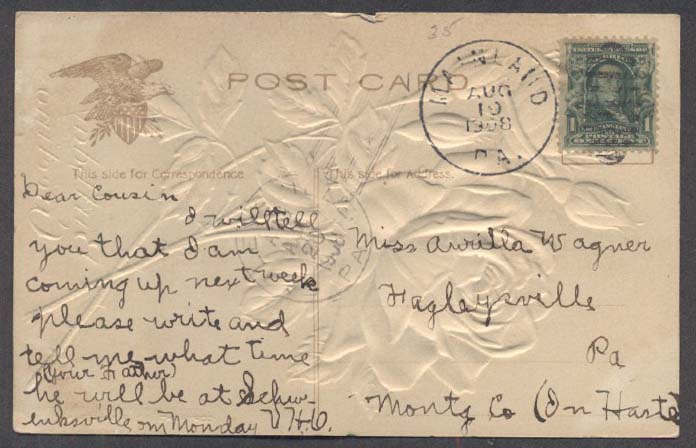 35
POST CARD
MAINLAND
AUG
10
1908
PA.
1
This side for Correspondence.
This side for Address.
Dear Cousin
I will tell
you that I am
coming up next week
please write and
tell me what time
(Your Father)
he will be at Schw-
enksville on Monday
Miss Avrilla Wagner
Hagleysville
Pa
Montg Co (In Haste)